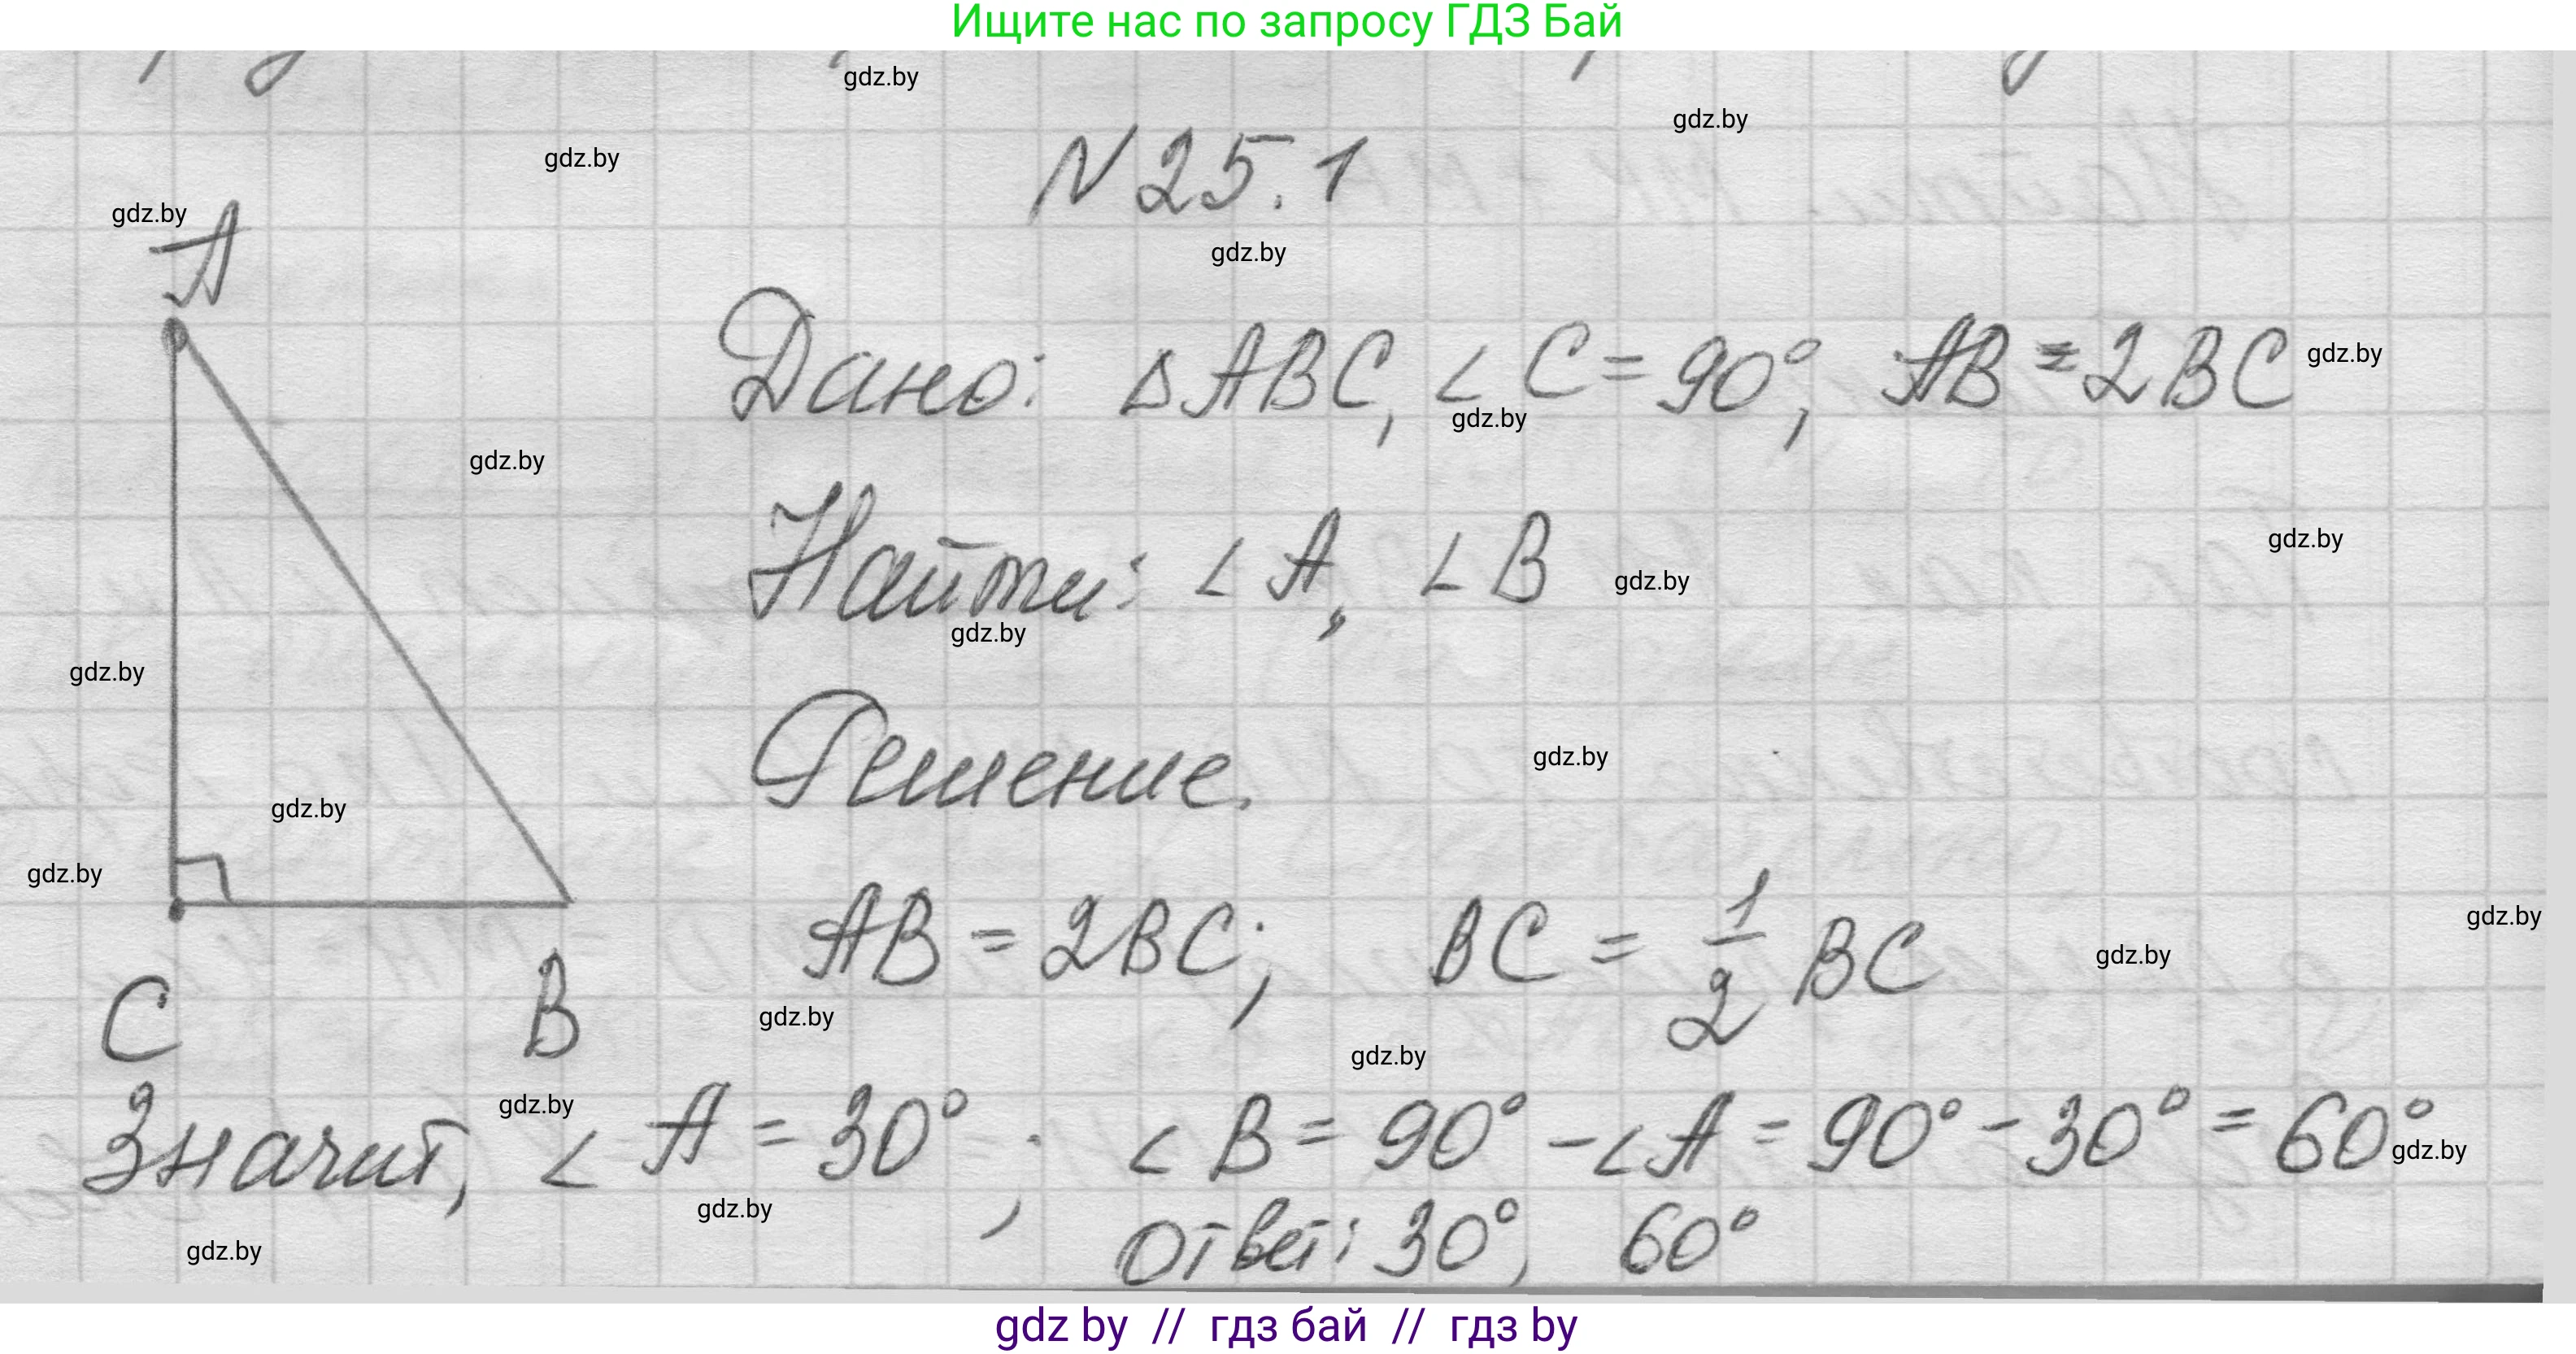 Ищите нас по запросу ГДЗ Бай
gdz.by
gdz.by
gdz.by
N 25.1
gdz.by
A
gdz.by
Дано: ΔABC, ∠C = 90°, AB = 2BC
gdz.by
gdz.by
gdz.by
Найти: ∠A, ∠B
gdz.by
gdz.by
gdz.by
gdz.by
Решение.
gdz.by
gdz.by
gdz.by
AB = 2BC; BC = 1/2 BC
gdz.by
gdz.by
C B
gdz.by
gdz.by
gdz.by
Значит, ∠A = 30°; ∠B = 90° - ∠A = 90° - 30° = 60°
gdz.by
gdz.by
Ответ: 30°, 60°
gdz.by
gdz by // гдз бай // гдз by